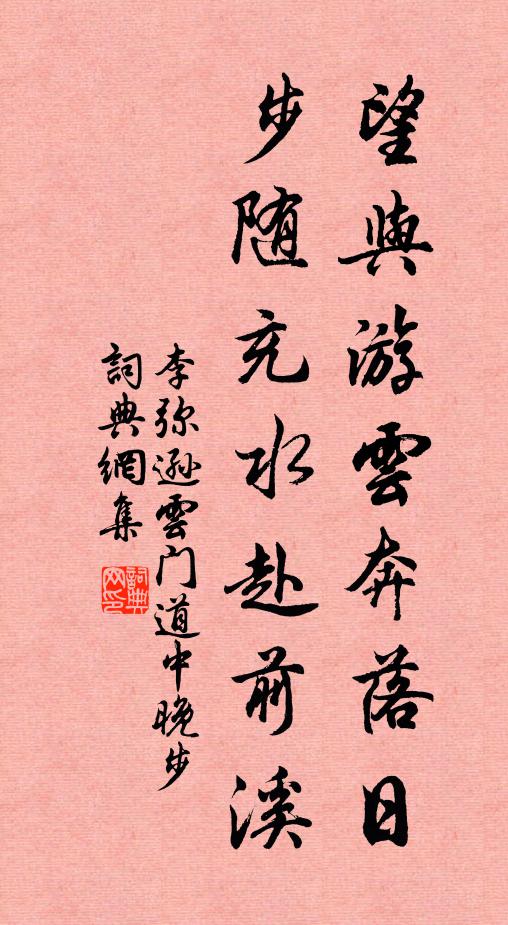 望與游雲奔落日
步随充水赴前溪
李弥遜雲门道中晚步
詞典網集
詞典网印